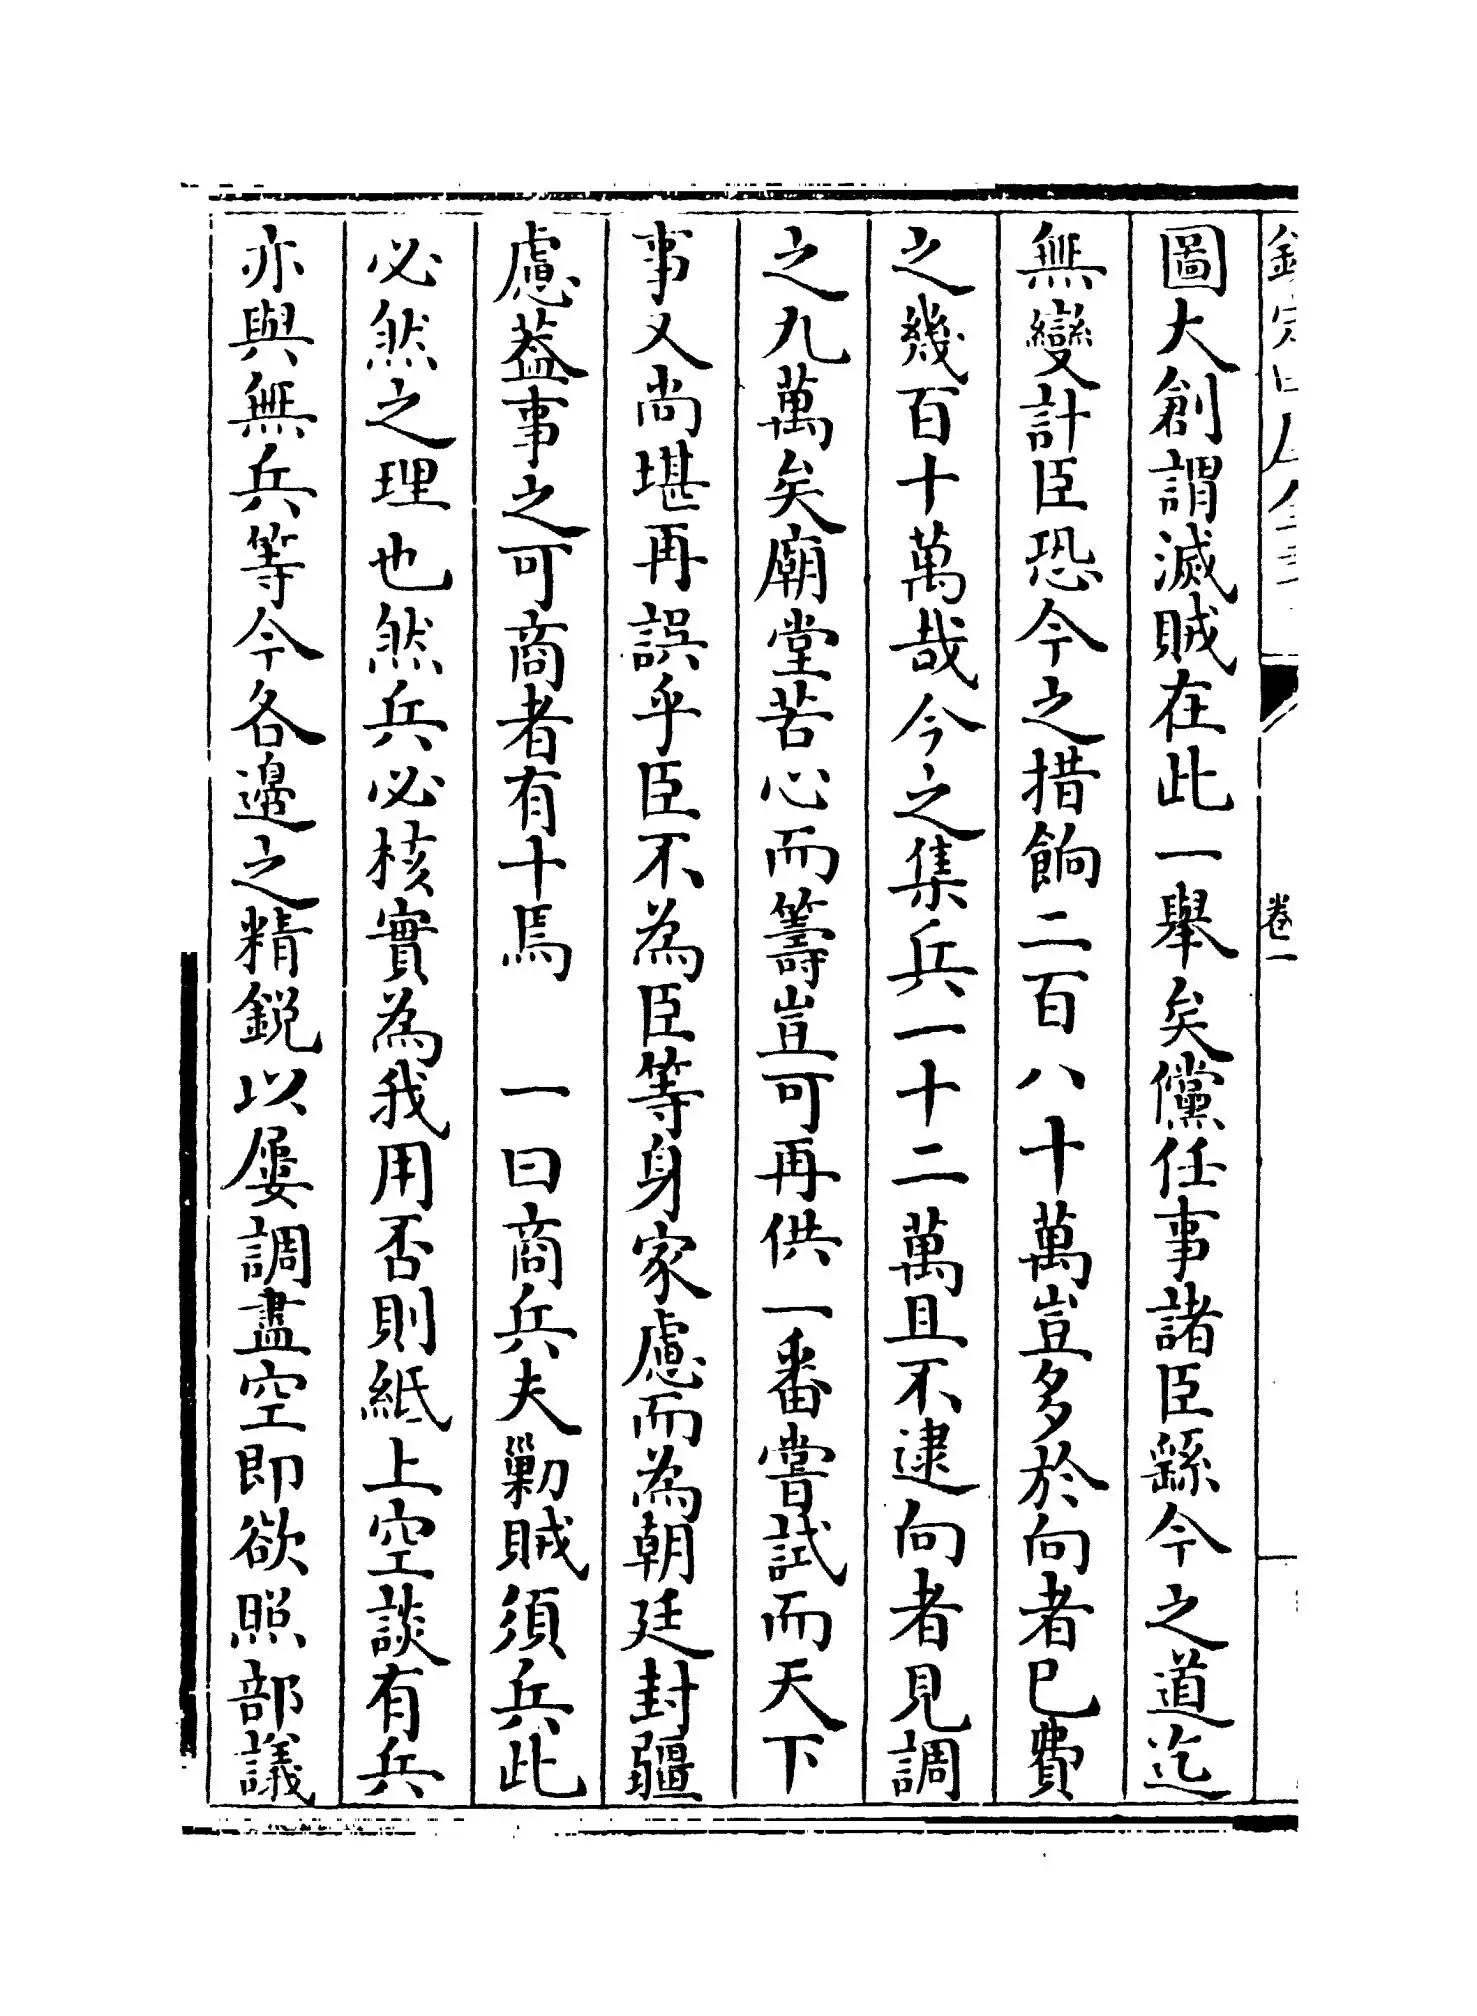 圖大創謂滅賊在此一舉矣儻任事諸臣繇今之道迄
無變計臣恐今之措餉二百八十萬豈多於向者已費
之幾百十萬哉今之集兵一十二萬且不逮向者見調
之九萬矣廟堂苦心而籌豈可再供一番嘗試而天下
事又尚堪再誤乎臣不為臣等身家慮而為朝廷封疆
慮葢事之可商者有十焉　一曰商兵夫勦賊須兵此
必然之理也然兵必核實為我用否則紙上空談有兵
亦與無兵等今各邊之精鋭以屢調盡空即欲照部議
卷一